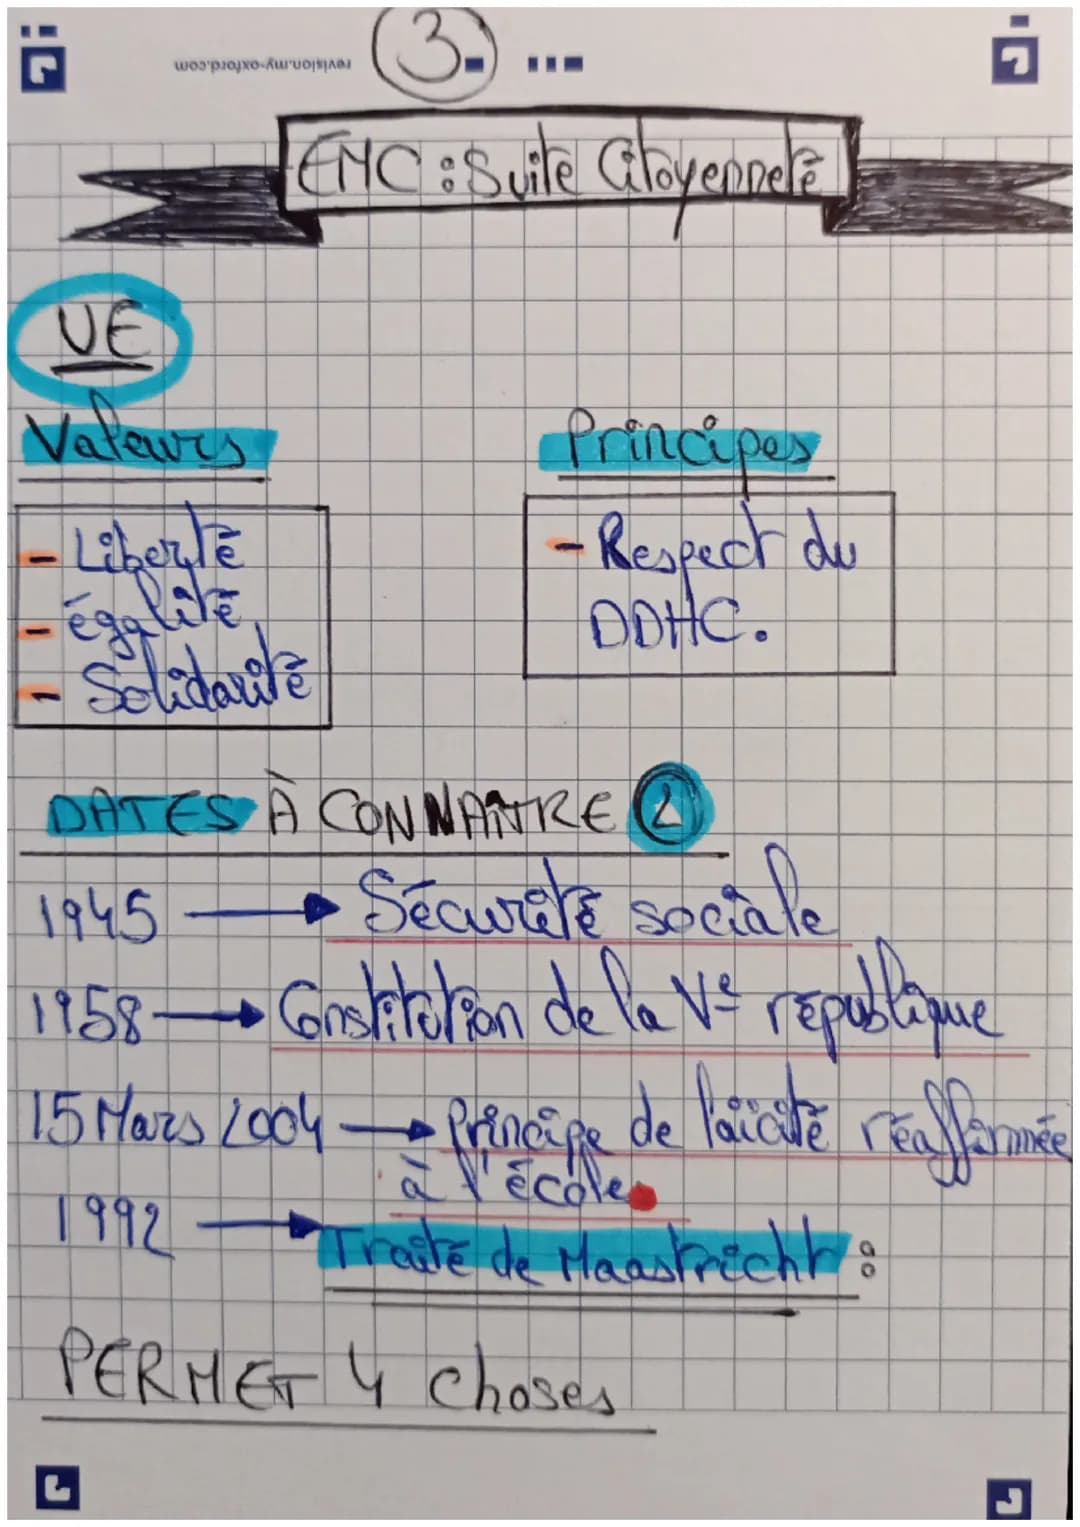 3.
revision.my-oxford.com
EMC : Suite Citoyenneté
UE
Valeurs
- Liberté
- égalité
- Solidarité
Principes
- Respect du
DDHC.
DATES À CONNAITRE 2
1945 → Sécurité sociale
1958 → Constitution de la Ve république
15 Mars 2004 → Principe de laïcité réaffirmée
à l'école
1992 → Traité de Maastricht :
PERMET 4 choses